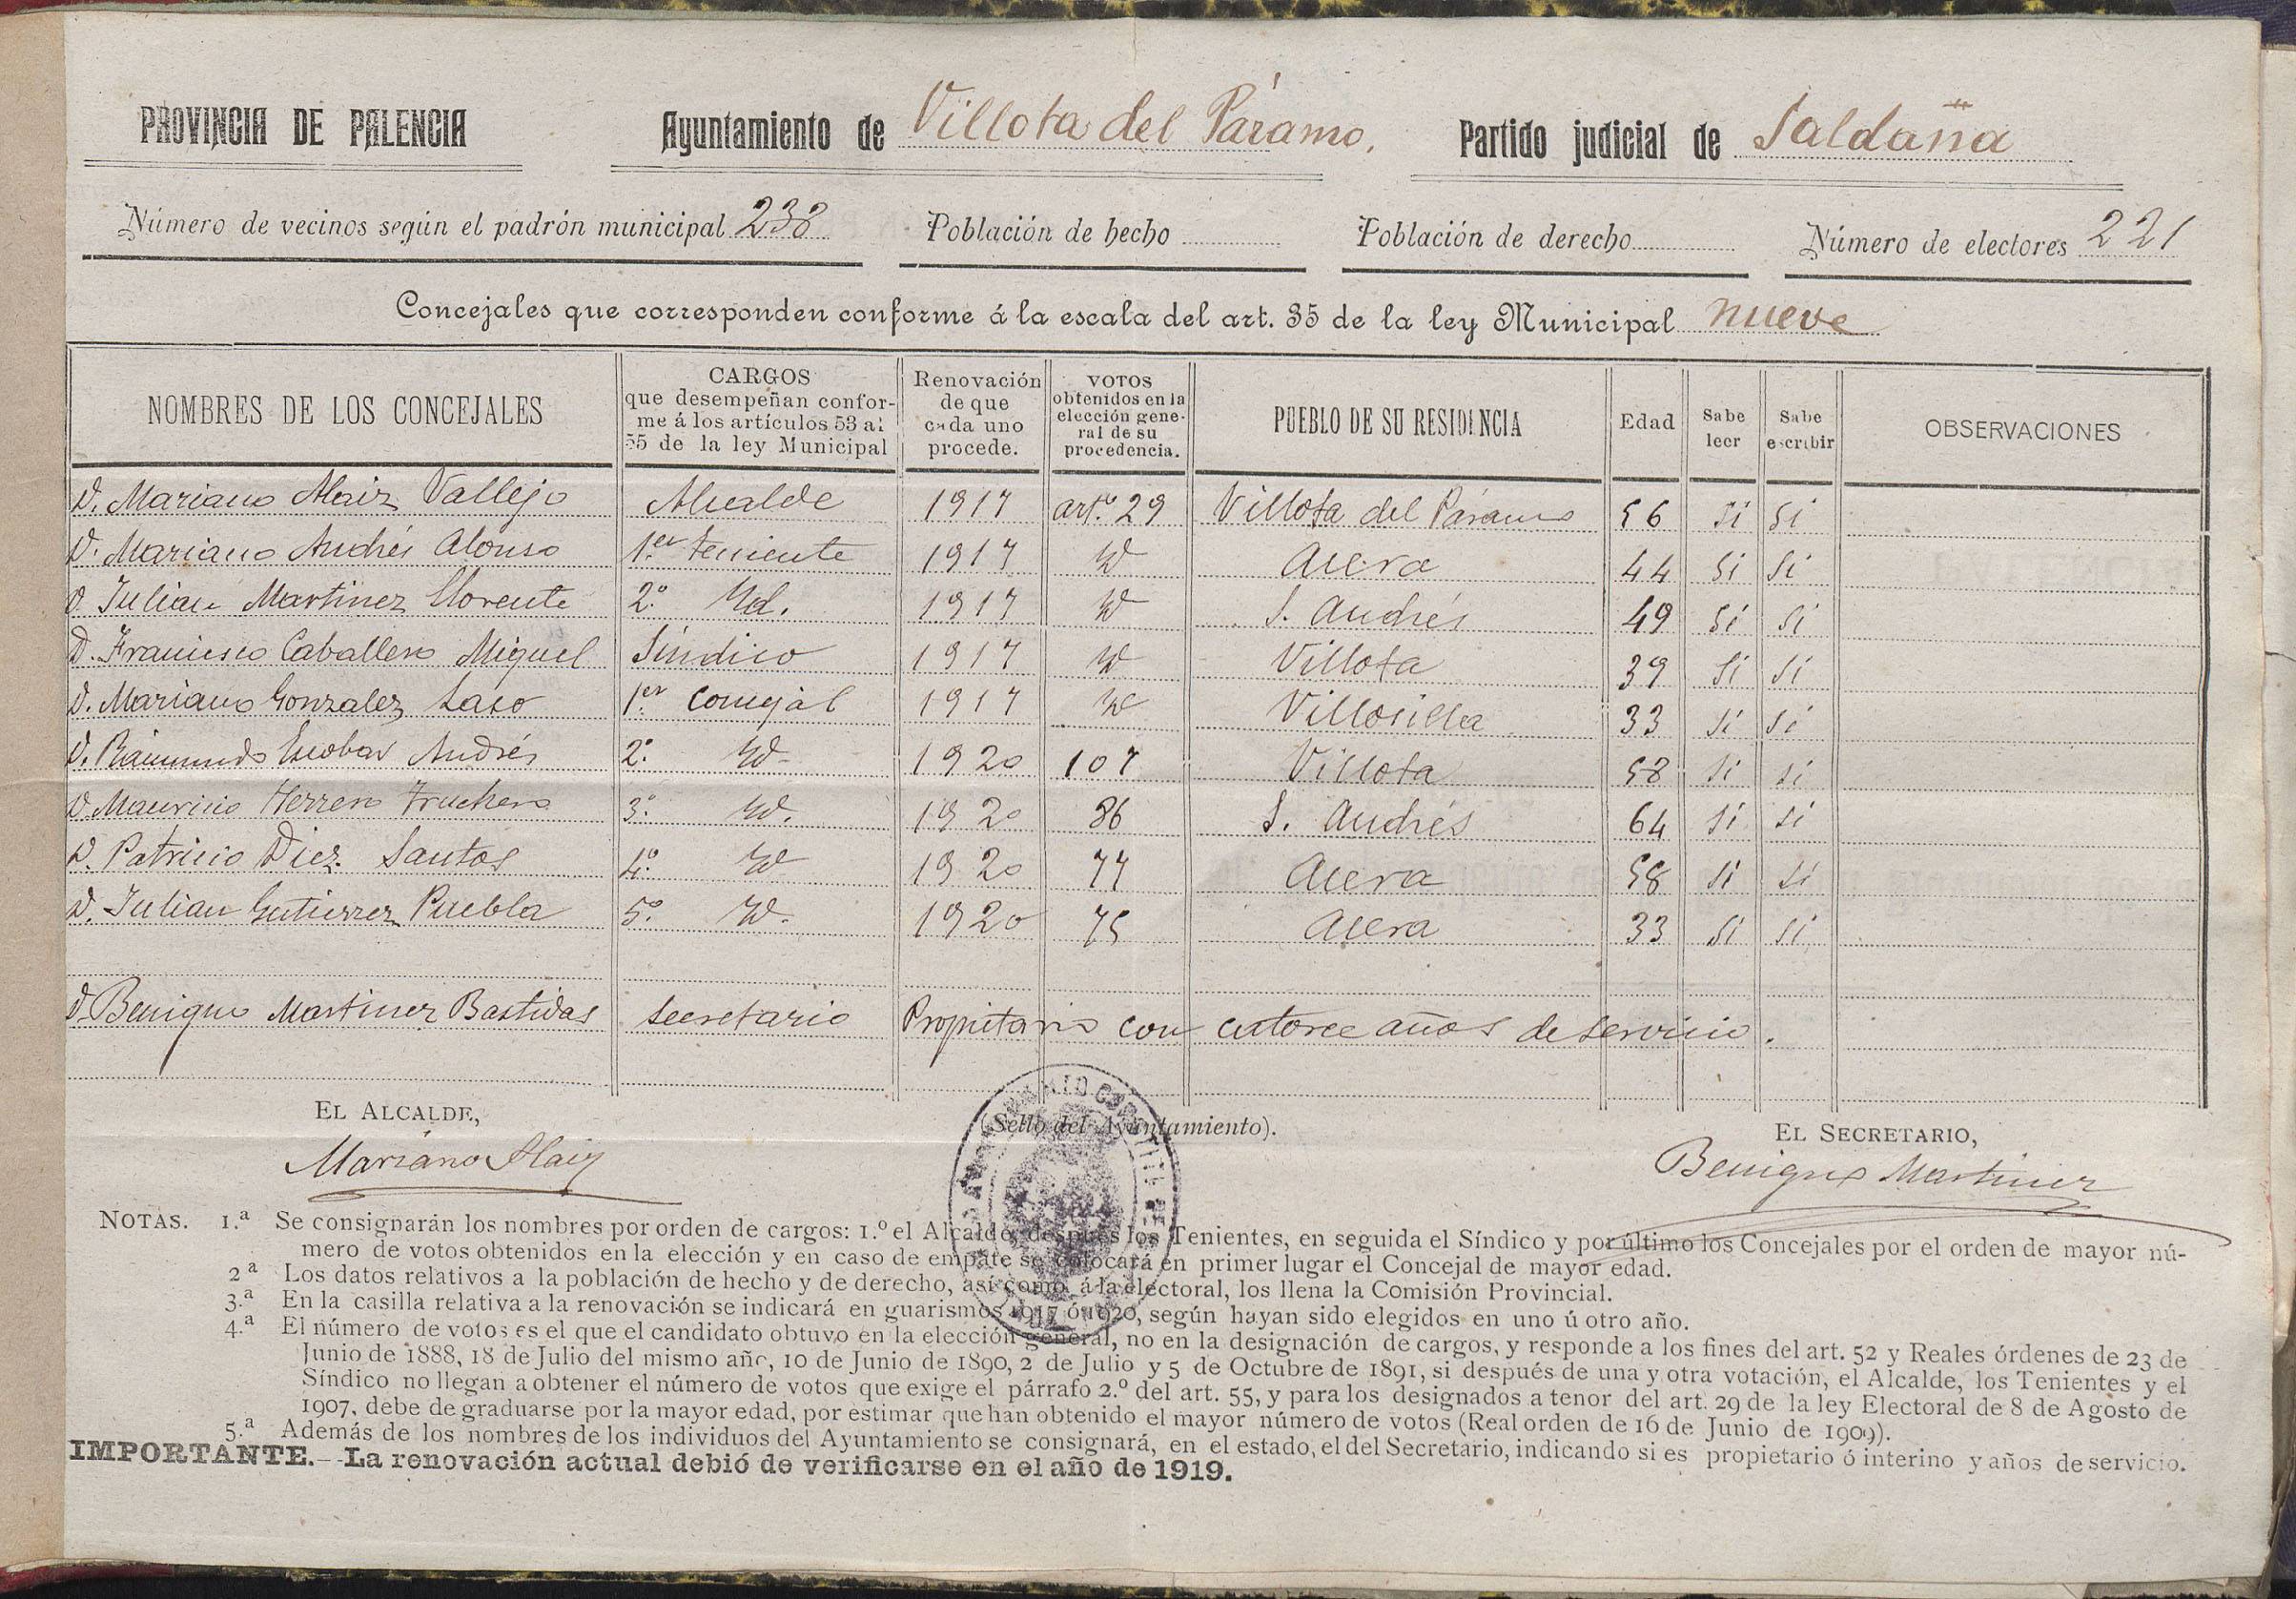 PROVINCIA DE PALENCIA Ayuntamiento de Villota del Páramo. Partido judicial de Saldaña
Número de vecinos según el padrón municipal 238 Población de hecho Población de derecho Número de electores 221
Concejales que corresponden conforme á la escala del art. 35 de la ley Municipal nueve
NOMBRES DE LOS CONCEJALES
CARGOS
que desempeñan confor-
me á los artículos 53 al
55 de la ley Municipal
Renovación
de que
cada uno
procede.
VOTOS
obtenidos en la
elección gene-
ral de su
procedencia.
PUEBLO DE SU RESIDENCIA
Edad
Sabe
leer
Sabe
escribir
OBSERVACIONES
D. Mariano Alaiz Vallejo Alcalde 1917 art.º 29 Villota del Páramo 56 Si Si
D. Mariano Andrés Alonso 1.er teniente 1917 Id Acera 44 Si Si
D. Julian Martinez Llorente 2.º Id. 1917 Id S. Andrés 49 Si Si
D. Francisco Caballero Miguel Síndico 1917 Id Villota 39 Si Si
D. Mariano Gonzalez Laso 1.er concejal 1917 Id Villosilla 33 Si Si
D. Raimundo Escobar Andrés 2.º Id. 1920 107 Villota 58 Si Si
D. Mauricio Herrero Truchero 3.º Id. 1920 86 S. Andrés 64 Si Si
D. Patricio Diez Santos 4.º Id 1920 77 Acera 58 Si Si
D. Julian Gutierrez Puebla 5.º Id. 1920 75 Acera 33 Si Si
D. Benigno Martinez Bastidas Secretario Propietario con catorce años de servicio.
EL ALCALDE,
(Sello del Ayuntamiento).
EL SECRETARIO,
Mariano Alaiz
Benigno Martinez
NOTAS. 1.ª Se consignarán los nombres por orden de cargos: 1.º el Alcalde, después los Tenientes, en seguida el Síndico y por último los Concejales por el orden de mayor nú-
mero de votos obtenidos en la elección y en caso de empate se colocará en primer lugar el Concejal de mayor edad.
2.ª Los datos relativos a la población de hecho y de derecho, así como á la electoral, los llena la Comisión Provincial.
3.ª En la casilla relativa a la renovación se indicará en guarismos 1917 ó 1920, según hayan sido elegidos en uno ú otro año.
4.ª El número de votos es el que el candidato obtuvo en la elección general, no en la designación de cargos, y responde a los fines del art. 52 y Reales órdenes de 23 de
Junio de 1888, 18 de Julio del mismo año, 10 de Junio de 1890, 2 de Julio y 5 de Octubre de 1891, si después de una y otra votación, el Alcalde, los Tenientes y el
Síndico no llegan a obtener el número de votos que exige el párrafo 2.º del art. 55, y para los designados a tenor del art. 29 de la ley Electoral de 8 de Agosto de
1907, debe de graduarse por la mayor edad, por estimar que han obtenido el mayor número de votos (Real orden de 16 de Junio de 1909).
5.ª Además de los nombres de los individuos del Ayuntamiento se consignará, en el estado, el del Secretario, indicando si es propietario ó interino y años de servicio.
IMPORTANTE.—La renovación actual debió de verificarse en el año de 1919.